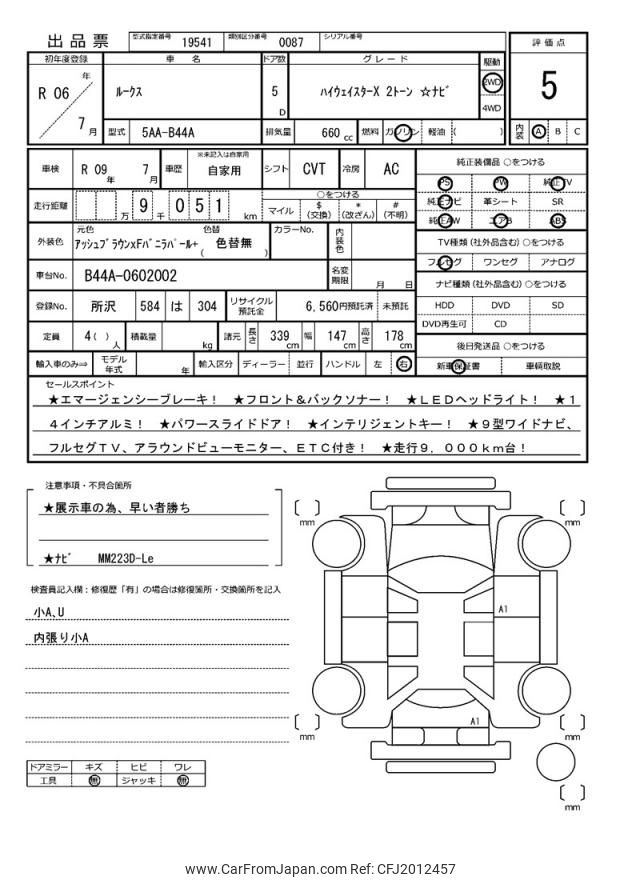 出品票 型式指定番号 19541 類別区分番号 0087 シリアル番号
初年度登録 車名 ドア数 グレード 駆動 評価点
R 06 年 7 月 ルークス 5 D ハイウェイスターX 2トーン ☆ナビ 2WD 4WD 5
型式 5AA-B44A 排気量 660 cc 燃料 ガソリン 軽油 ( ) 内装 A B C
車検 R 09 年 7 月 車歴 ※未記入は自家用 自家用 シフト CVT 冷房 AC
走行距離 万 9 千 0 5 1 km ○をつける マイル $ (交換) * (改ざん) # (不明)
外装色 元色 色替 アッシュブラウンxFバニラパール+ ( 色替無 ) カラーNo. 内装色
車台No. B44A-0602002 名変期限 月 日
登録No. 所沢 584 は 304 リサイクル預託金 6,560円預託済 未預託
定員 4( ) 人 積載量 kg 諸元 長さ 339 cm 幅 147 cm 高さ 178 cm
輸入車のみ⇒ モデル年式 年 輸入区分 ディーラー 並行 ハンドル 左 右
純正装備品 ○をつける
PS PW 純正TV
純正ナビ 革シート SR
純正AW エアB ABS
TV種類 (社外品含む) ○をつける
フルセグ ワンセグ アナログ
ナビ種類 (社外品含む) ○をつける
HDD DVD SD
DVD再生可 CD
後日発送品 ○をつける
新車保証書 車輌取説
セールスポイント
★エマージェンシーブレーキ! ★フロント&バックソナー! ★LEDヘッドライト! ★1
4インチアルミ! ★パワースライドドア! ★インテリジェントキー! ★9型ワイドナビ、
フルセグTV、アラウンドビューモニター、ETC付き! ★走行9,000km台!
注意事項・不具合箇所
★展示車の為、早い者勝ち
★ナビ MM223D-Le
検査員記入欄:修復歴「有」の場合は修復箇所・交換箇所を記入
小A、U
内張り小A
ドアミラー キズ ヒビ ワレ
工具 無 ジャッキ 無
mm
mm
A1
A1
mm
mm
mm
www.CarFromJapan.com Ref: CFJ2012457